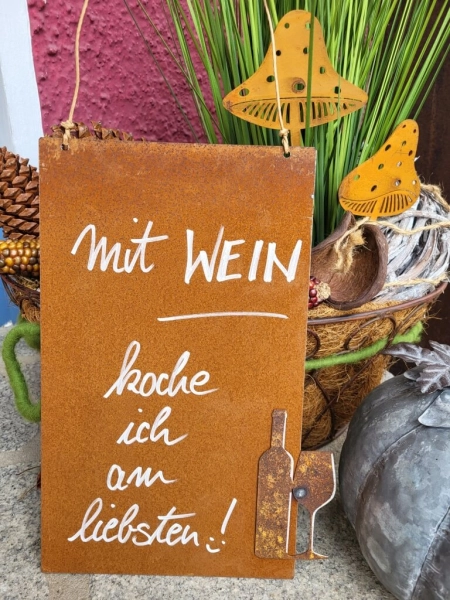 mit WEIN
koche
ich
am
liebsten :!